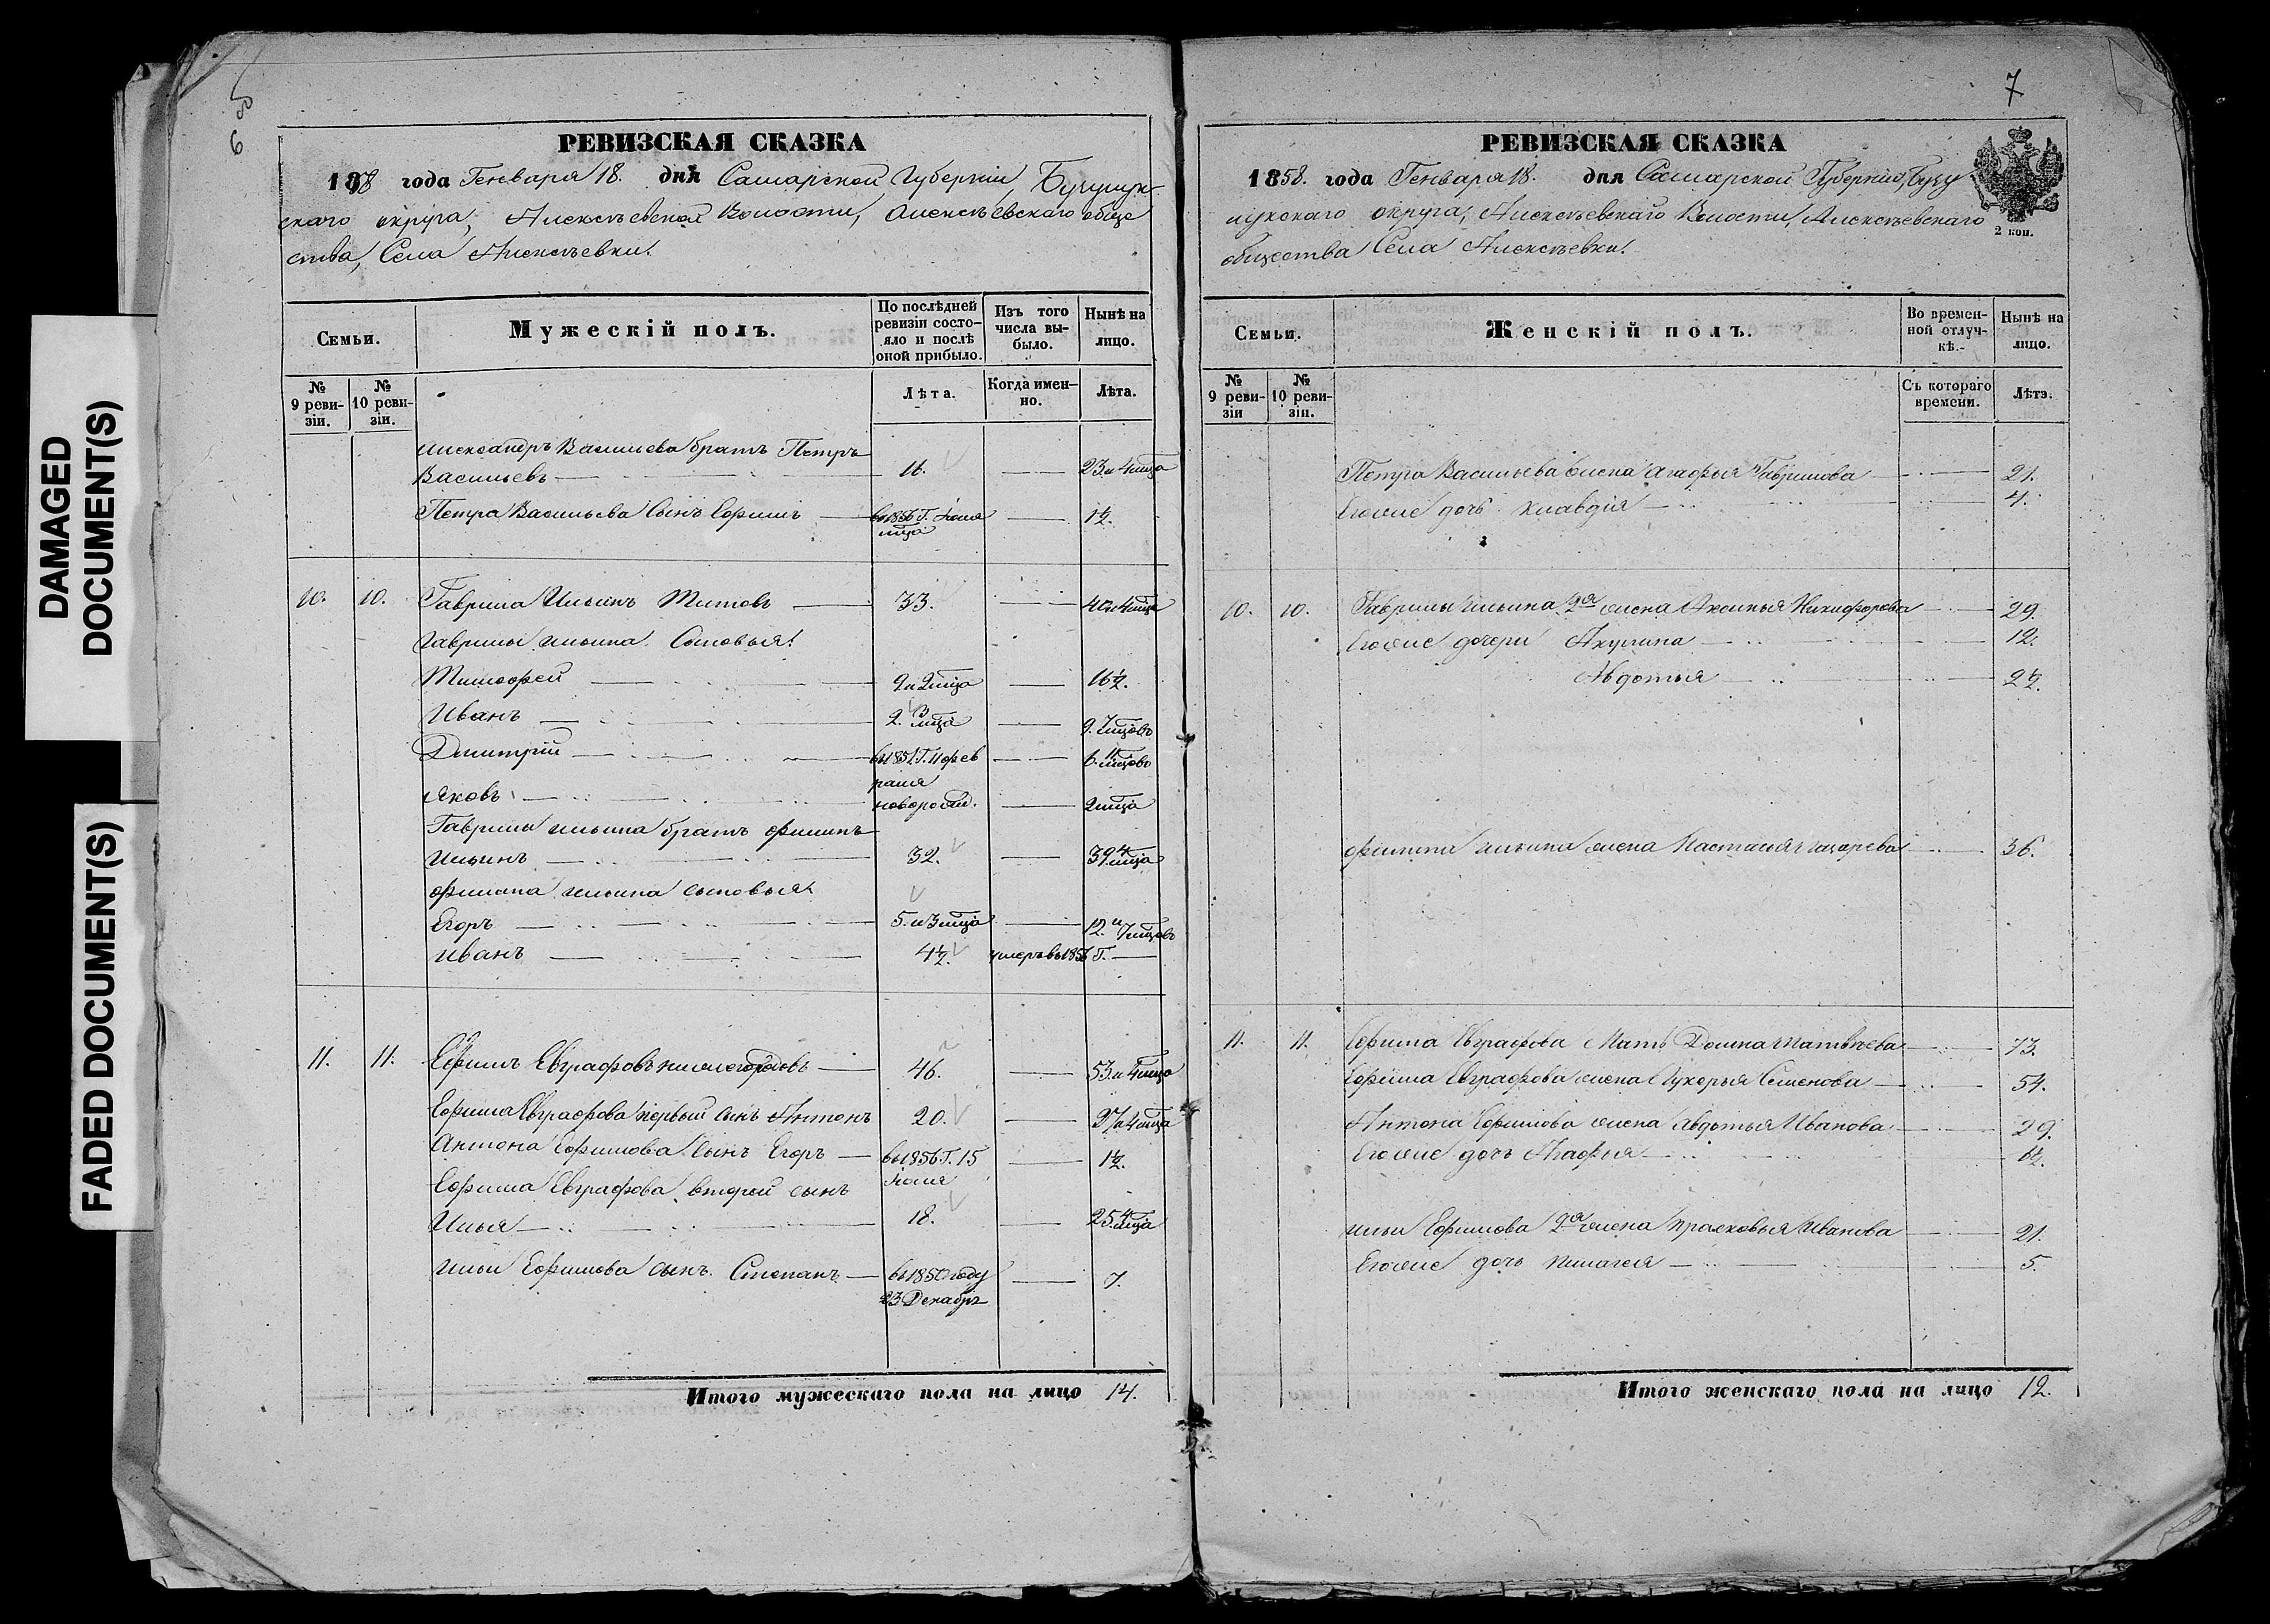 DAMAGED
DOCUMENT(S)
FADED DOCUMENT(S)
6 об
РЕВИЗСКАЯ СКАЗКА
1858 года Генваря 18. дня Самарской Губерніи, Бузулук-
скаго округа, Алексѣевской Волости, Алексѣевскаго обще
ства, Села Алексѣевки.
Семьи.
Мужескій полъ.
По послѣдней ревизіи состо-яло и послѣ оной прибыло.
Изъ того числа вы-было.
Нынѣ на лицо.
№ 9 реви-зіи.
№ 10 реви-зіи.
Лѣта.
Когда имен-но.
Лѣта.
Александръ Васильева братъ Петръ
Васильевъ 16. 23 и 4 мца
Петра Васильева Сынъ Ефимъ въ 1856 Г. Іюля 1½.
мца
10. 10. Гаврила Ильинъ Титовъ 33. 40 и 4 мца
Гаврилы Ильина Сыновья:
Тимофей 9 и 2 мца 16½.
Иванъ 2. 3 мца 9. 7 мцовъ
Дмитрій въ 1851 Г. 11 фев 6. 11 мцовъ
раля
Яковъ новорожд. 2 мца
Гаврилы Ильина братъ Филипъ
Ильинъ 32. 39. 4 мца
Филипа Ильина сыновья
Егоръ 5. и 3 мца 12. и 7 мцовъ
Иванъ 4½. умеръ въ 1856 Г.
11. 11. Ефимъ Евграфовъ Нижегородовъ 46. 53. и 4 мца
Ефима Евграфова первый сынъ Антонъ 20. 27 и 4 мца
Антона Ефимова Сынъ Егоръ въ 1856 Г. 15 1½.
Іюля
Ефима Евграфова второй сынъ
Илья 18. 25. 4 мца
Ильи Ефимова сынъ Степанъ въ 1850 году 7.
23 Декабря
Итого мужескаго пола на лицо 14.
7
РЕВИЗСКАЯ СКАЗКА
1858. года Генваря 18. дня Самарской Губерніи, Бузу
лукскаго округа, Алексѣевскаго Волости, Алексѣевскаго
общества Села Алексѣевки.
2 коп.
Семьи.
Женскій полъ.
Во времен-ной отлуч-кѣ.
Нынѣ на лицо.
№ 9 реви-зіи
№ 10 реви-зіи.
Съ котораго времени.
Лѣта.
Петра Васильева жена Агафья Гаврилова 21.
Егожне дочь Клавдія 4.
10. 10. Гаврилы Ильина 2я жена Аксинья Никифорова 29.
Егожне дочери Акулина 12.
Авдотья 2½.
Филипа Ильина жена Настасья 36.
11. 11. Ефима Евграфова Мать Домна Матвѣева 73.
Ефима Евграфова жена Лукерья Семенова 54.
Антона Ефимова жена Авдотья Иванова 29.
Егожне дочь Агафья
Ильи Ефимова 2я жена Прасковья Иванова 21.
Егожне дочь Пилагея 5.
Итого женскаго пола на лицо 12.